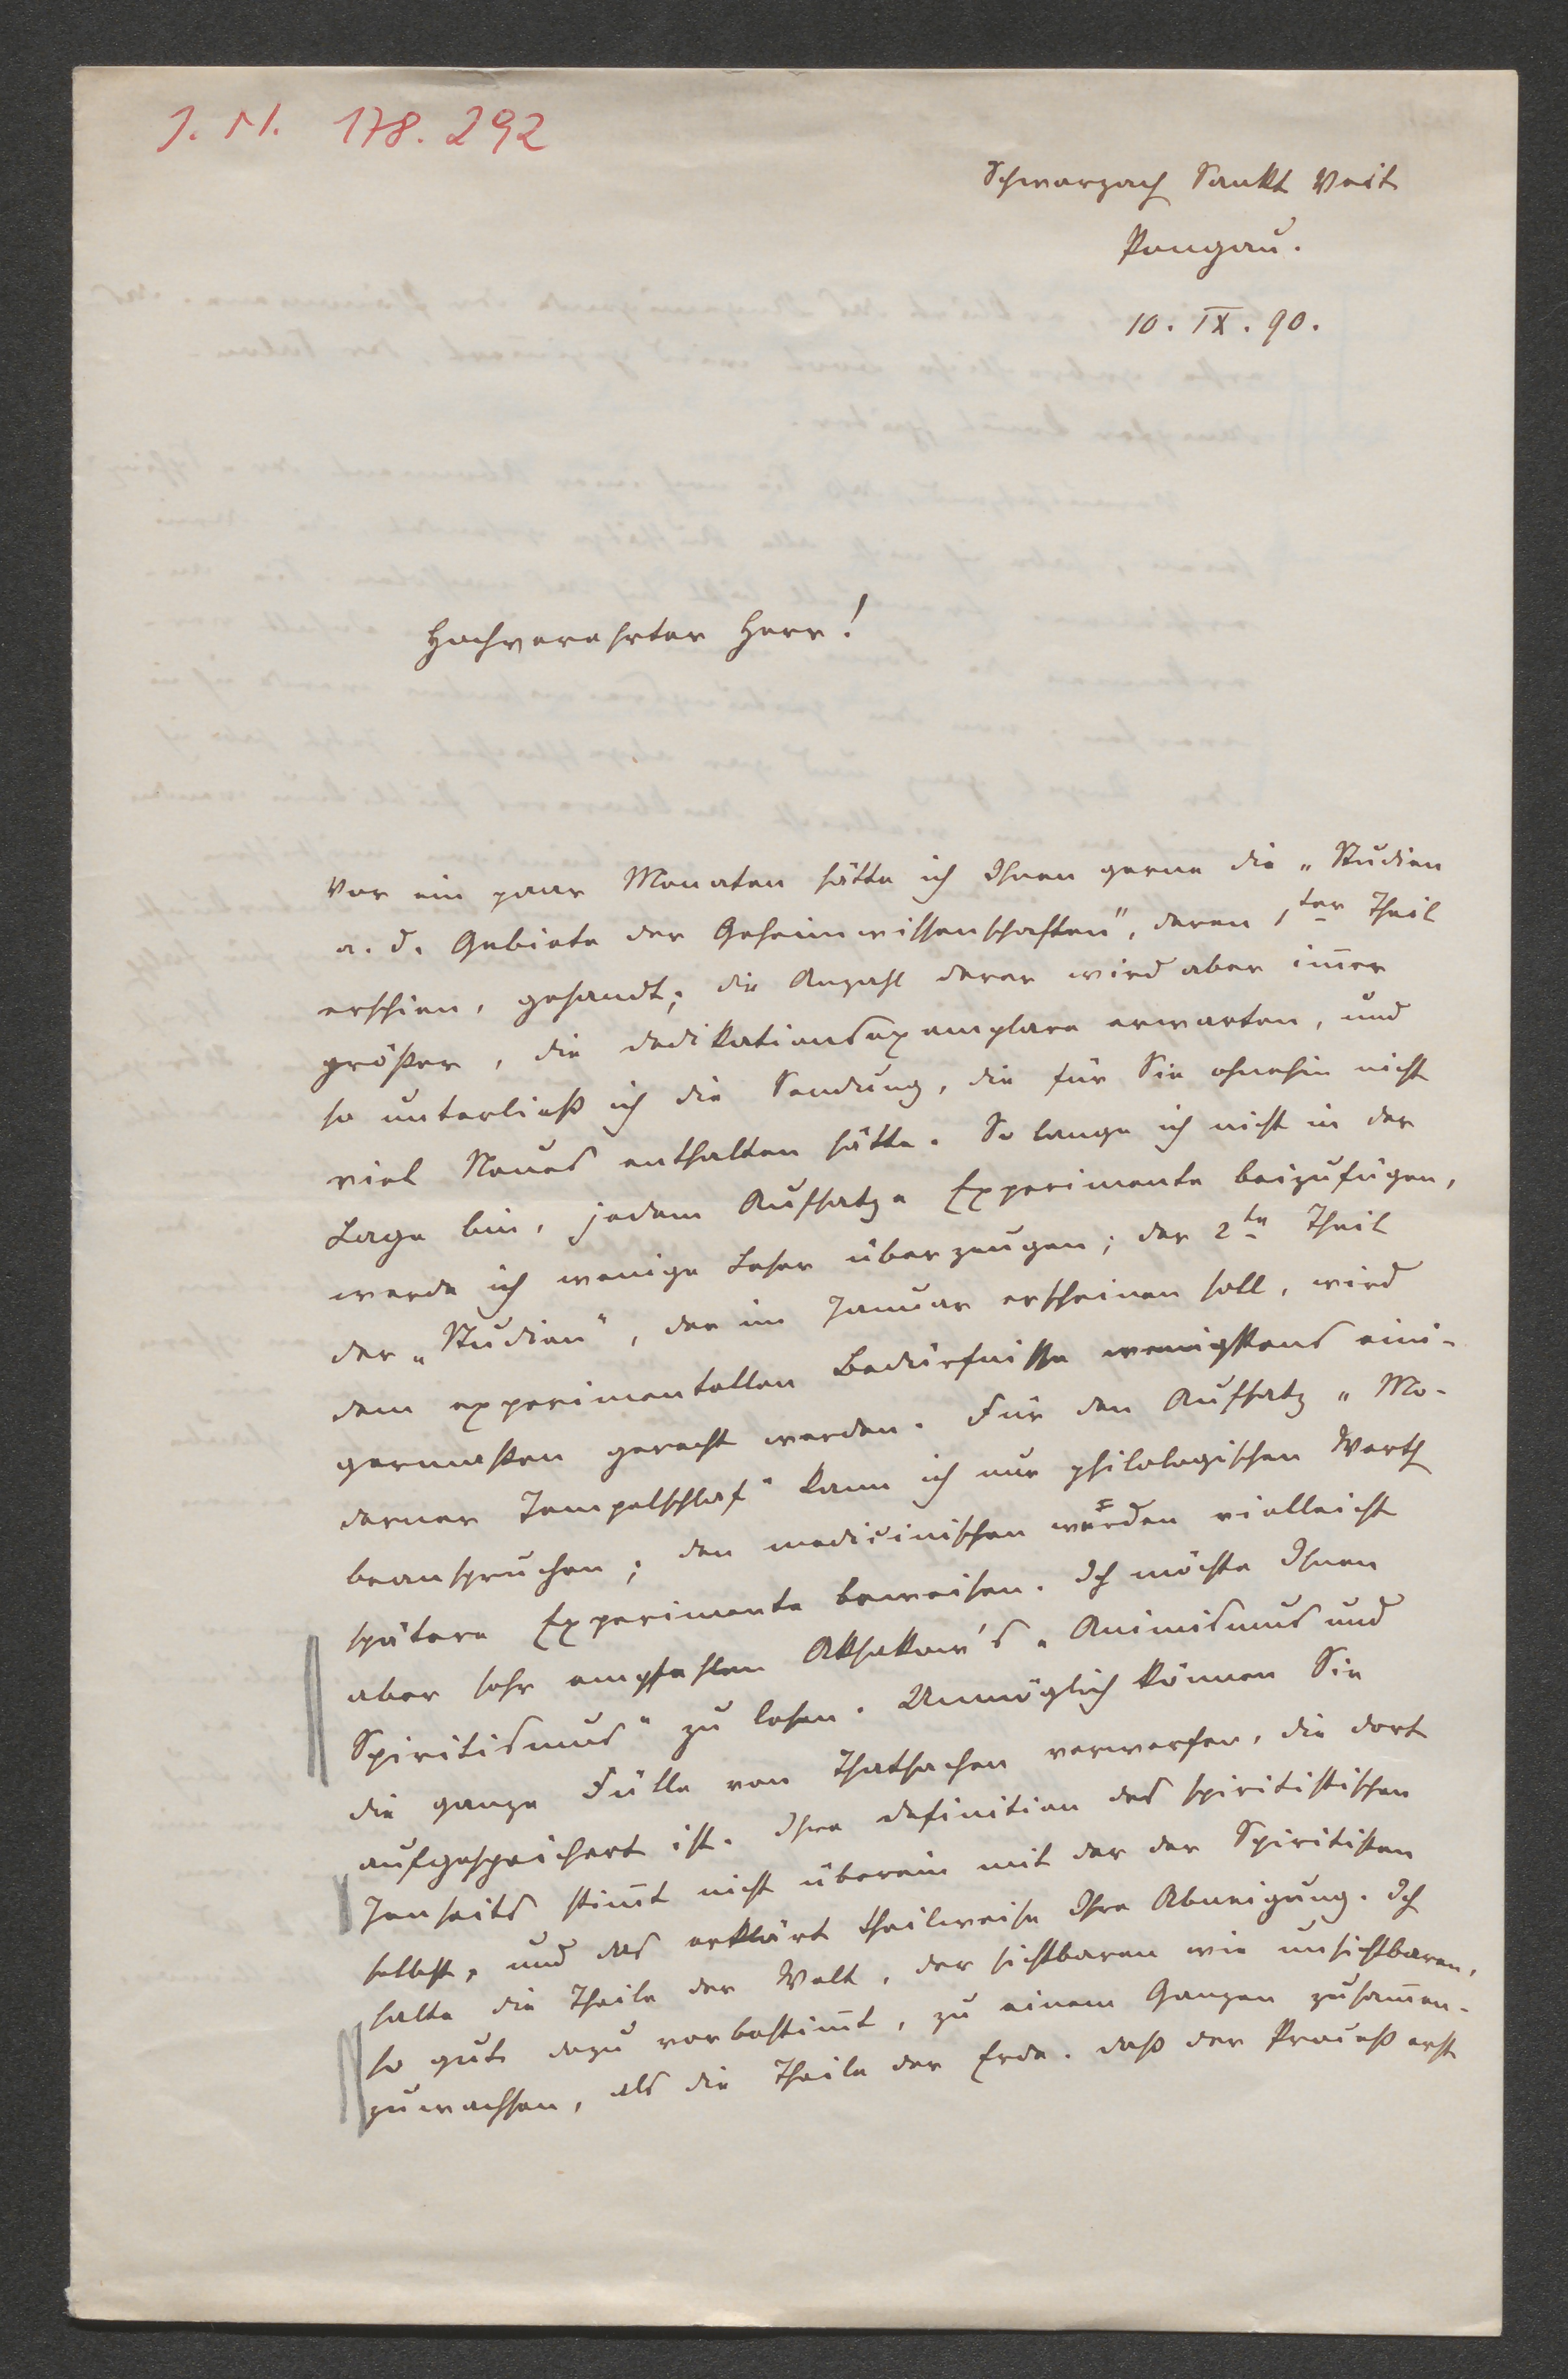 I. N. 178.292
Schwarzach Sankt Veit
Pongau.
10. IX. 90.
Hochverehrter Herr!
Vor ein paar Monaten hätte ich Ihnen gerne die „Studien
a. d. Gebiete der Geheimwissenschaften", deren 1ter Theil
erschien, gesandt; die Anzahl derer wird aber im̄er
größer, die Dedikationsexemplare erwarten, und
so unterließ ich die Sendung, die für Sie ohnehin nicht
viel Neues enthalten hätte. So lange ich nicht in der
Lage bin, jedem Aufsatze Experimente beizufügen,
werde ich wenige Leser überzeugen; der 2te Theil
der „Studien", der im Januar erscheinen soll, wird
dem experimentellen Bedürfnisse wenigstens eini-
germaßen gerecht werden. Für den Aufsatz „Mo-
derner Tempelschlaf" kann ich nur philologischen Werth
beanspruchen; den medicinischen werden vielleicht
spätere Experimente beweisen. Ich möchte Ihnen
aber sehr empfehlen Aksakow's „Animismus und
Spiritismus" zu lesen. Unmöglich können Sie
die ganze Fülle von Thatsachen verwerfen, die dort
aufgespeichert ist. Ihre Definition des spiritistischen
Jenseits stim̄t nicht überein mit der der Spiritisten
selbst, und das erklärt theilweise Ihre Abneigung. Ich
halte die Theile der Welt, der sichtbaren wie unsichtbaren,
so gut dazu vorbestim̄t, zu einem Ganzen zusam̄en-
zuwachsen, als die Theile der Erde. Daß der Proceß erst